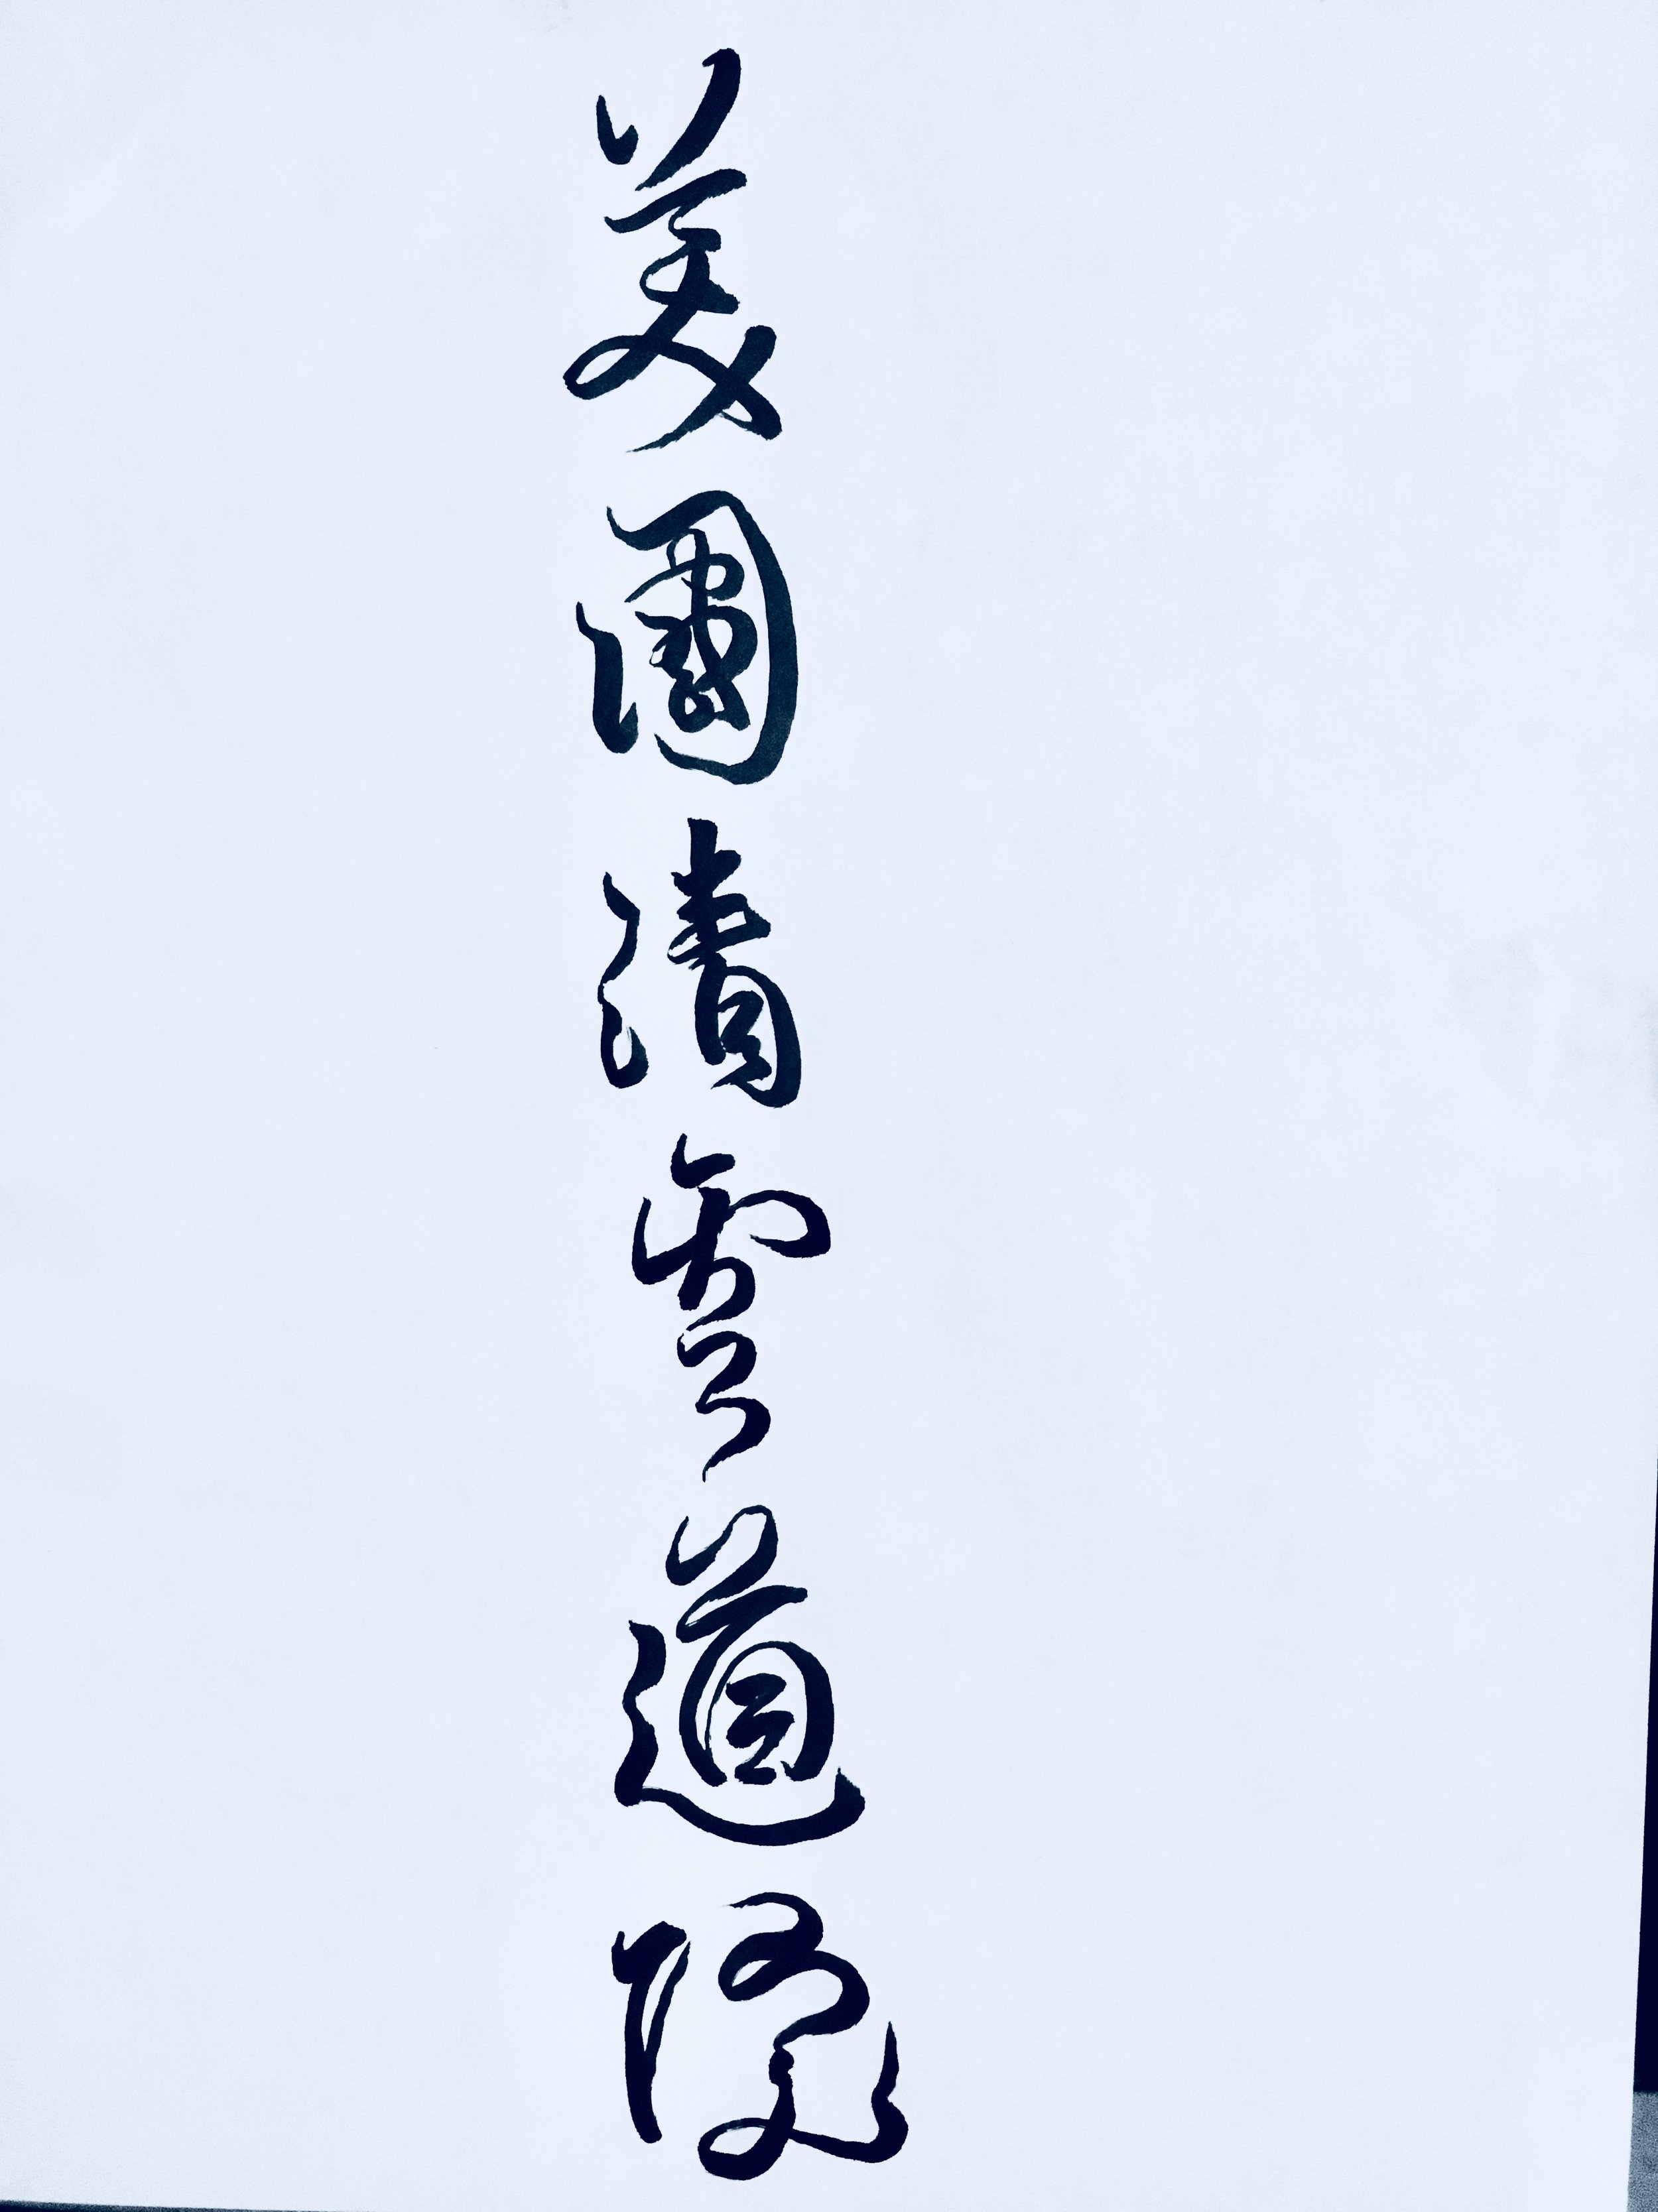 美國清雲道院